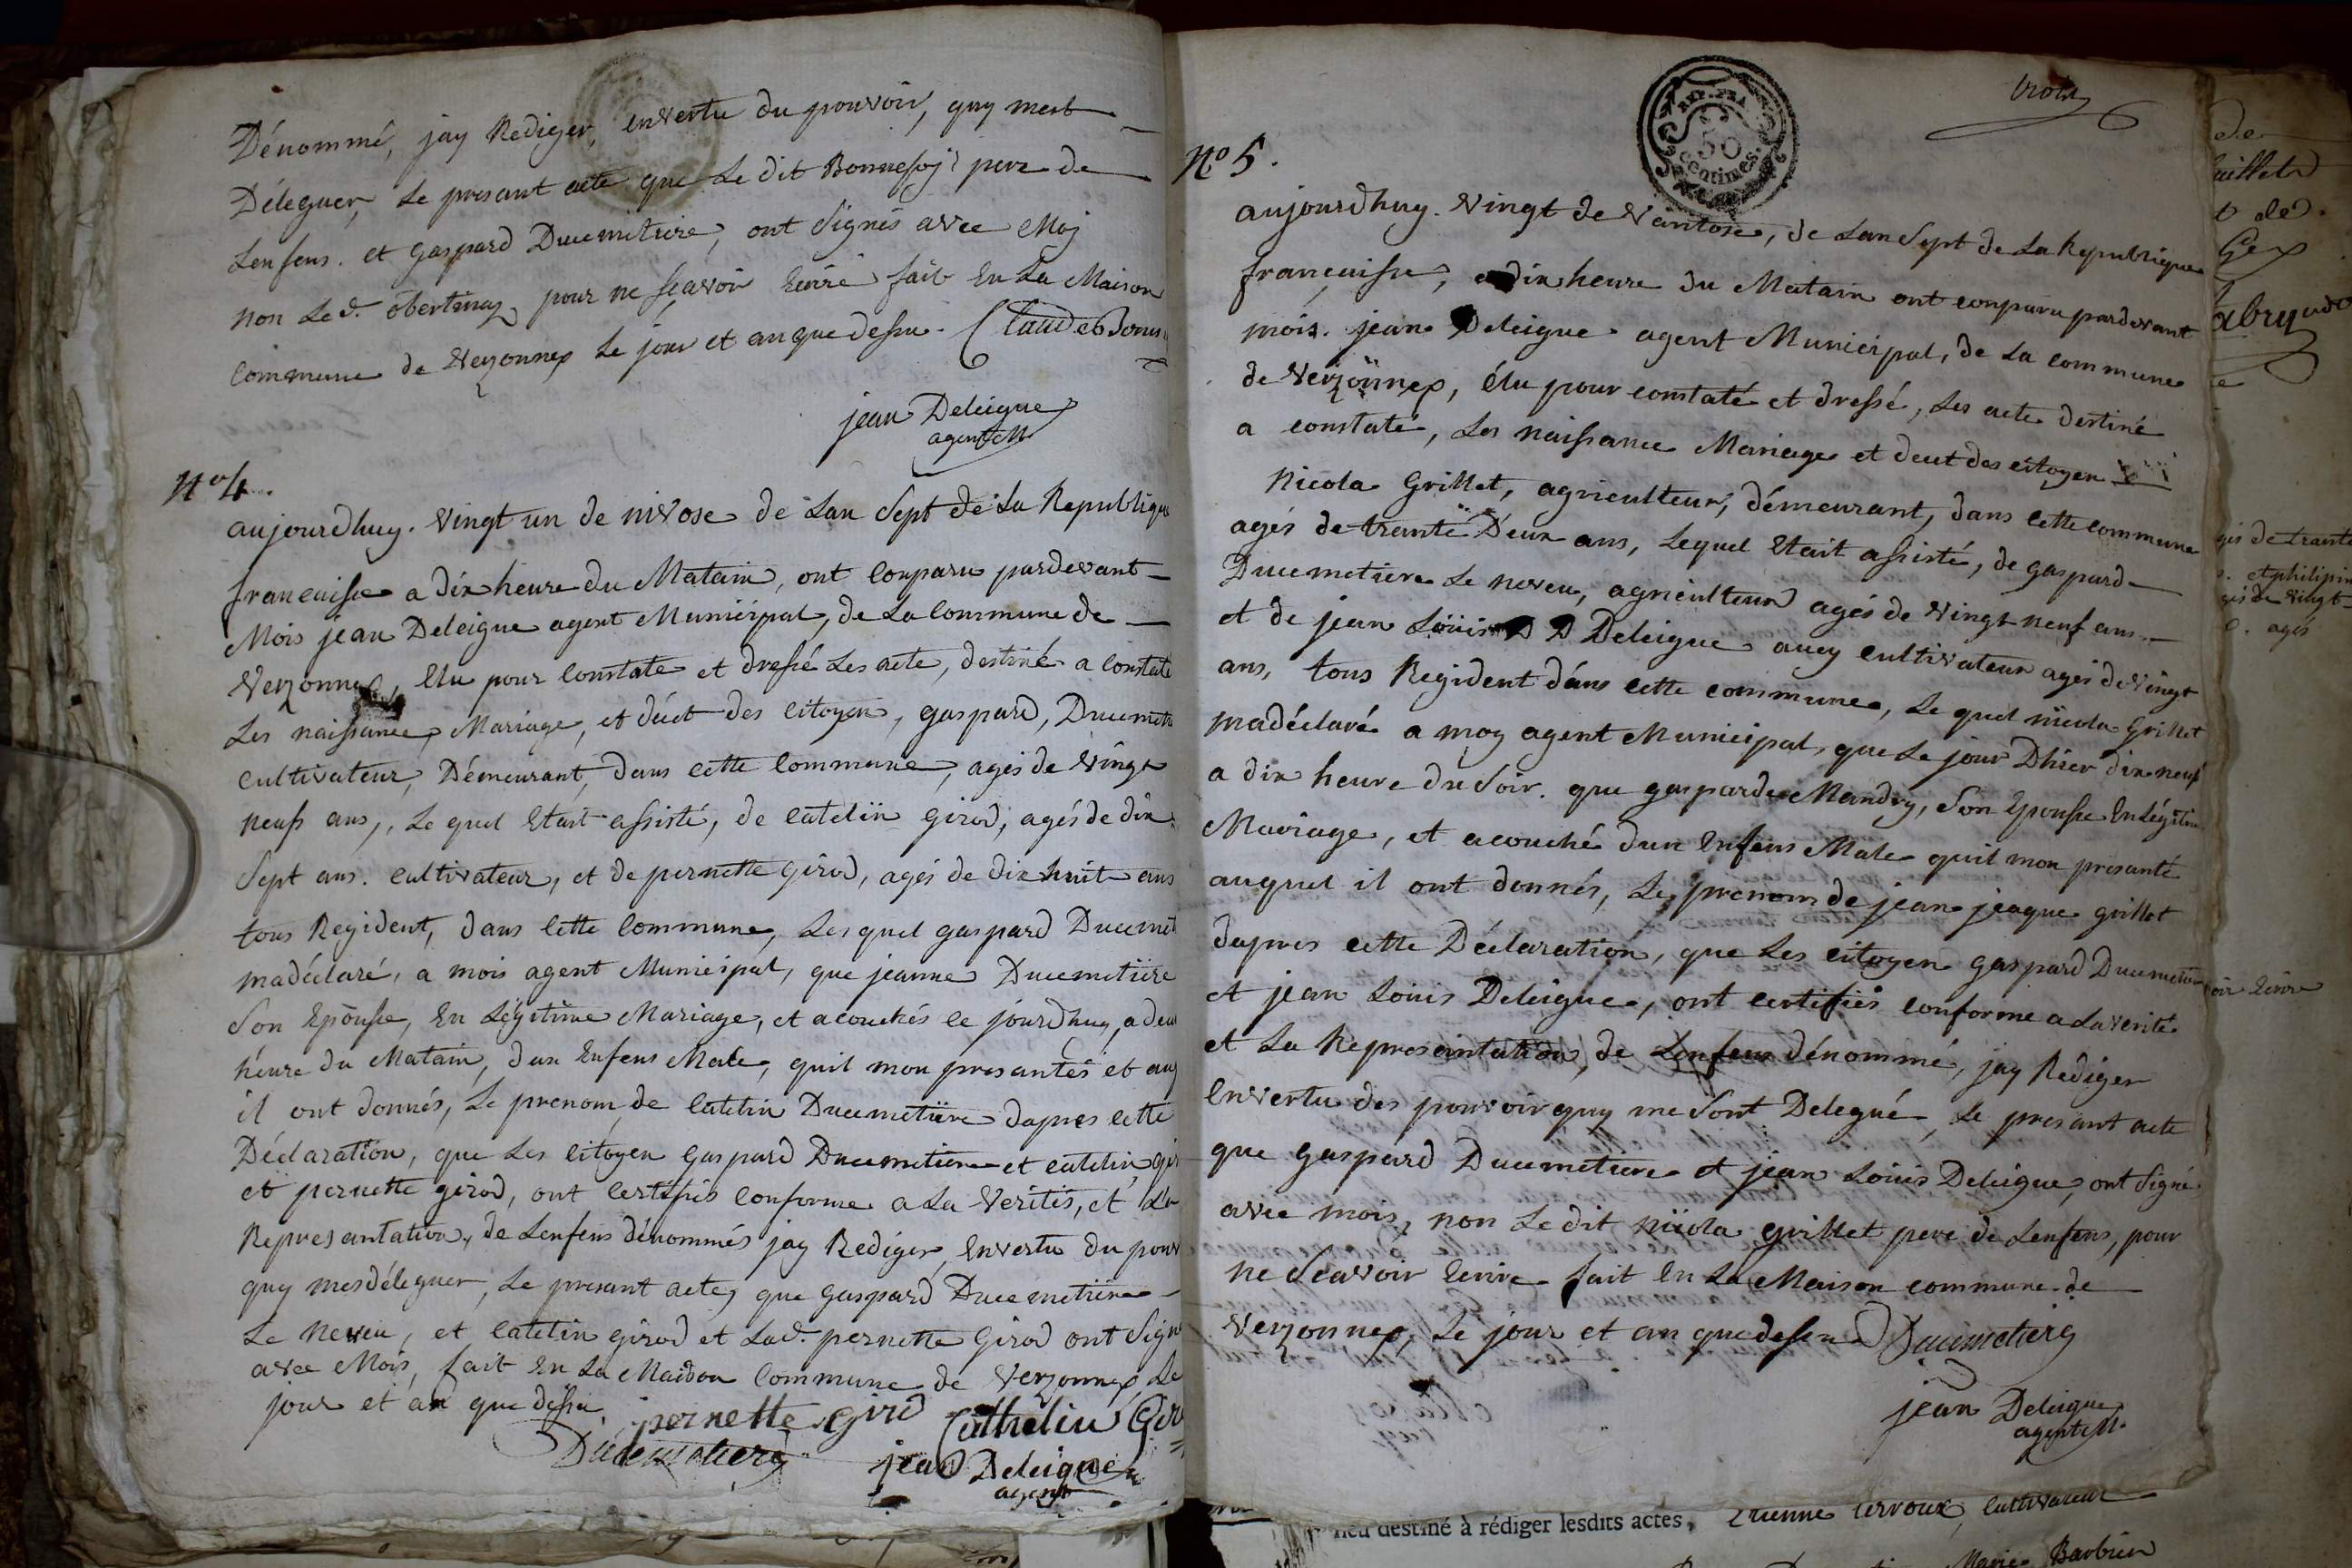 Dénommé, jay Rediger, envertu du pouvoir, quy mest
Déleguer, Le presant acte que Le dit Bonnefoj pere de
Lenfens. et gaspard Ducimitiere, ont signés avec Moj
non Led. obertinaz pour ne scavoir Ecrire fait En La Maison
Commune de Verzonnex Le jour et anque dessu. Claude Bonn
jean Deleigue
agent M.
No 4.
aujourdhuy. Vingt un de nivose de Lan Sept de La Republique
francaisse a dix heure du Matain, ont Conparu pardevant
Mois jean Deleigue agent Municipal, de La Commune de
Verzonnex, Elu pour Constate et dressé Les acte, destiné a Constaté
Les naissance, Mariage, et décet des Citoyen, gaspard, Ducimeti
Cultivateur, Démeurant, dans cette Commune, agés de Vingt
neuf ans,, Le quel Etait assisté, de Catelin girod, agés de dix
Sept ans. Cultivateur, et de pernette girod, agés de dix huit ans
tous Regident, dans Cette Commune, Lesquel gaspard Ducimet
madéclaré, a mois agent Municipal, que jeanne Ducimetiere
Son Epousse, En Légitime Mariage, et acouchés ce jourdhuy, a deu
héure du Matain, dun Enfens Male, quil mon presantés et auq
il ont donnés, Le prenom de Catelin Ducimetiere dapres cette
Déclaration, que Les Citoyen gaspard Ducimetiere et Catelin gir
et pernette girod, ont Certifiés Conforme a La Verités, et La
Represantation, de Lenfens dénommés jay Rediger, Envertu du pouv
quy mesdéleguer, Le presant acte, que gaspard Ducimetiere
Le neveu, et Catelin girod et Lad. pernette Girod ont Sign
avec Mois, fait En La Maison Commune de Verzonnex Le
jour et an que dessu
pernette girod Cathelin Gir
Ducimetiere jean Deleigue
agent
REP. FRA
50
centimes.
trois
No 5.
aujourdhuy. Vingt de Vantose, de Lan Sept de La Republique
francaisse, a dix heure du Matain ont conparu pardevant
mois. jean Deleigue agent Municipal, de La commune
de Verzonnex, élu pour constaté et dressé, Les acte destiné
a constaté, Les naissance Mariage et decet des citoyen
Nicola Grillet, agriculteur, démeurant, dans cette commune
agés de trante Deux ans, Lequel Etait assisté, de gaspard
Ducimetiere Le neveu, agriculteur agés de Vingt neuf ans
et de jean Loüis D D Deleigue aucy cultivateur agés de Vingt
ans, tous Regident dans cette commune, Le quel nicola Grillet
madéclaré a moy agent Municipal, que Le jour Dhier dix neuf
a dix heure du Soir. que gasparde Mandry, Son Epousse En Légitim
Mariage, et acouché dun Enfens Male quil mon presanté
auquel il ont donnés, Le prenom de jean jeaque grillet
dapres cette Déclaration, que Les citoyen gaspard Ducimetiere
et jean Louis Deleigue, ont certifiés conforme a La verité
et La Represantation, de Lenfens dénommé, jay Rediger
Envertu des pouvoir quy me Sont Delegué, Le presant acte
que gaspard Ducimetiere et jean Louis Deleigue, ont Signé
avec mois, non Le dit nicola grillet pere de Lenfens, pour
ne Scavoir Ecrire fait En La Maison commune de
Verzonnex, Le jour et an que dessu Ducimetiere
jean Deleigue
agent M.
de
t de
Gex
gés de trante
et philipin
gés de Vingt
agés
oir Ecrire
lieu destiné à rédiger lesdits actes, Etienne Cervoux, Cultivateur
Marie Barbier